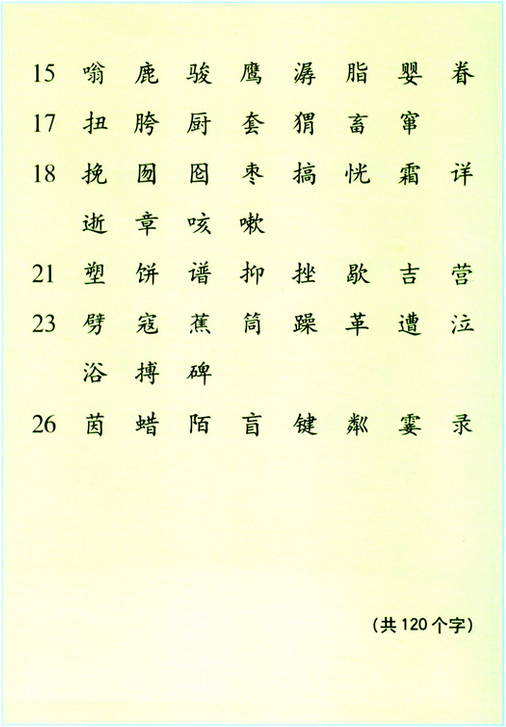 15 嗡 鹿 骏 鹰 潺 脂 婴 眷
17 扭 胯 厨 套 猬 畜 窜
18 挽 囫 囵 枣 搞 恍 霜 详
逝 章 咳 嗽
21 塑 饼 谱 抑 挫 歇 吉 营
23 劈 寇 蕉 筒 躁 革 遭 泣
浴 搏 碑
26 茵 蜡 陌 盲 键 粼 霎 录
(共120个字)